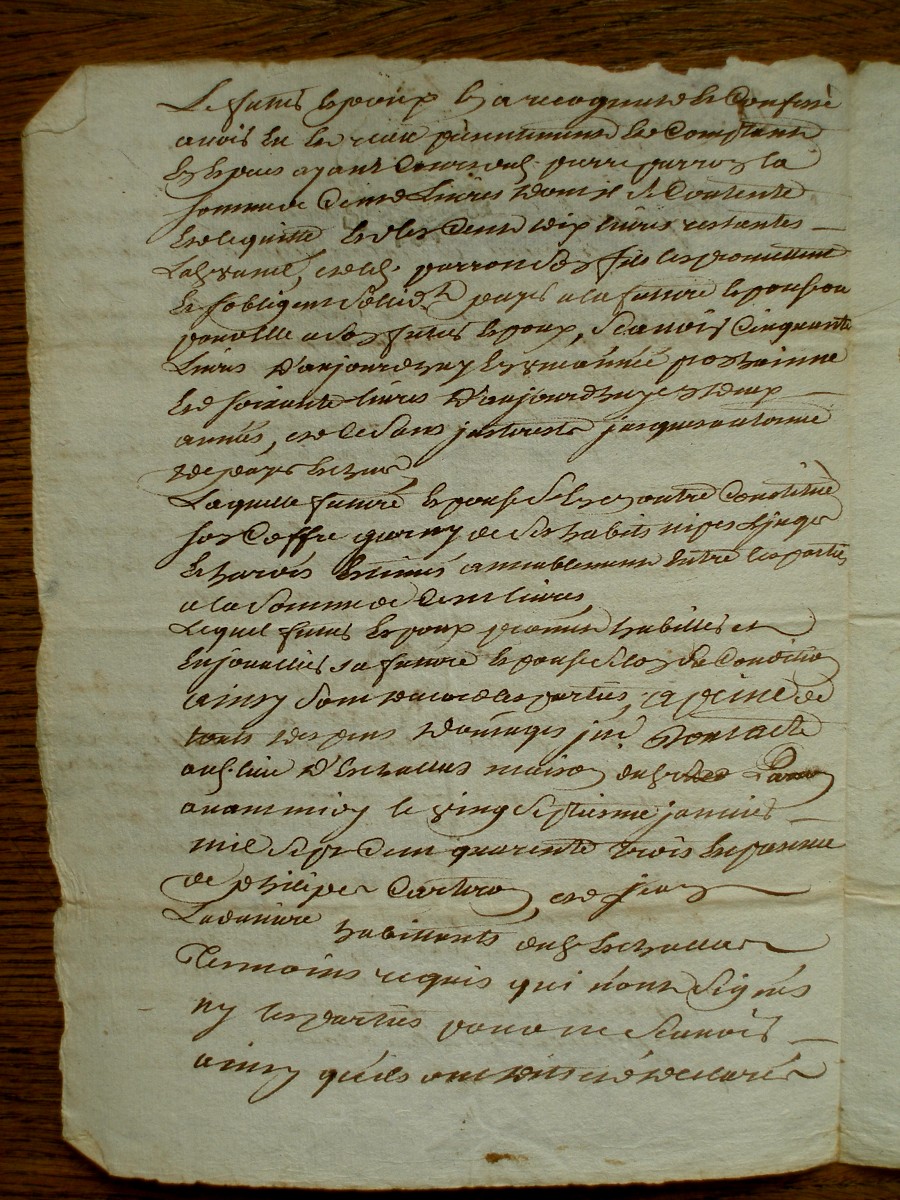 Le futur epoux En a recogneu et Confessé
avoir Eu Et reçu presentement Et Comptant
En Especes ayant Cours dud. pierre perron la
somme de Cent Livres dont il se Contente
et le quitte Et les Cent dix livres restantes
perron Son fils les promettent
Et sobligent Solid.t payer a la future Epouse ou
pour Elle a son futur Epoux, Scavoir Cinquante
Livres D'aujourdhuy En une année prochainne
Et soixante livres D'aujourdhuy en deux
années, et le Sans jnterests jusques au terme
de payes Echus
Laquelle future Epouse Sest En outre Constitué
son Coffre garny de Ses habits nipes Linges
Et hardes Estimés amiablement Entre les parties
a la Somme de Cent livres
Lequel futur Epoux promet habiller et
Enjoualler sa future Epouse Selon Sa Condition
ainsy Sont d'acord les parties, a peine de
touts despens domages jnt. dont acte
aud. lieu D'Echallas maison dud.
avant midy le vingt Septiesme janvier
mil Sept Cent quarente trois En presence
de philipe et jean
Ladaviere habittants dud. Echallas
Temoins requis qui n'ont Signés
ny les parties pour ne Scavoir
ainsy qu'ils ont dit et declarés